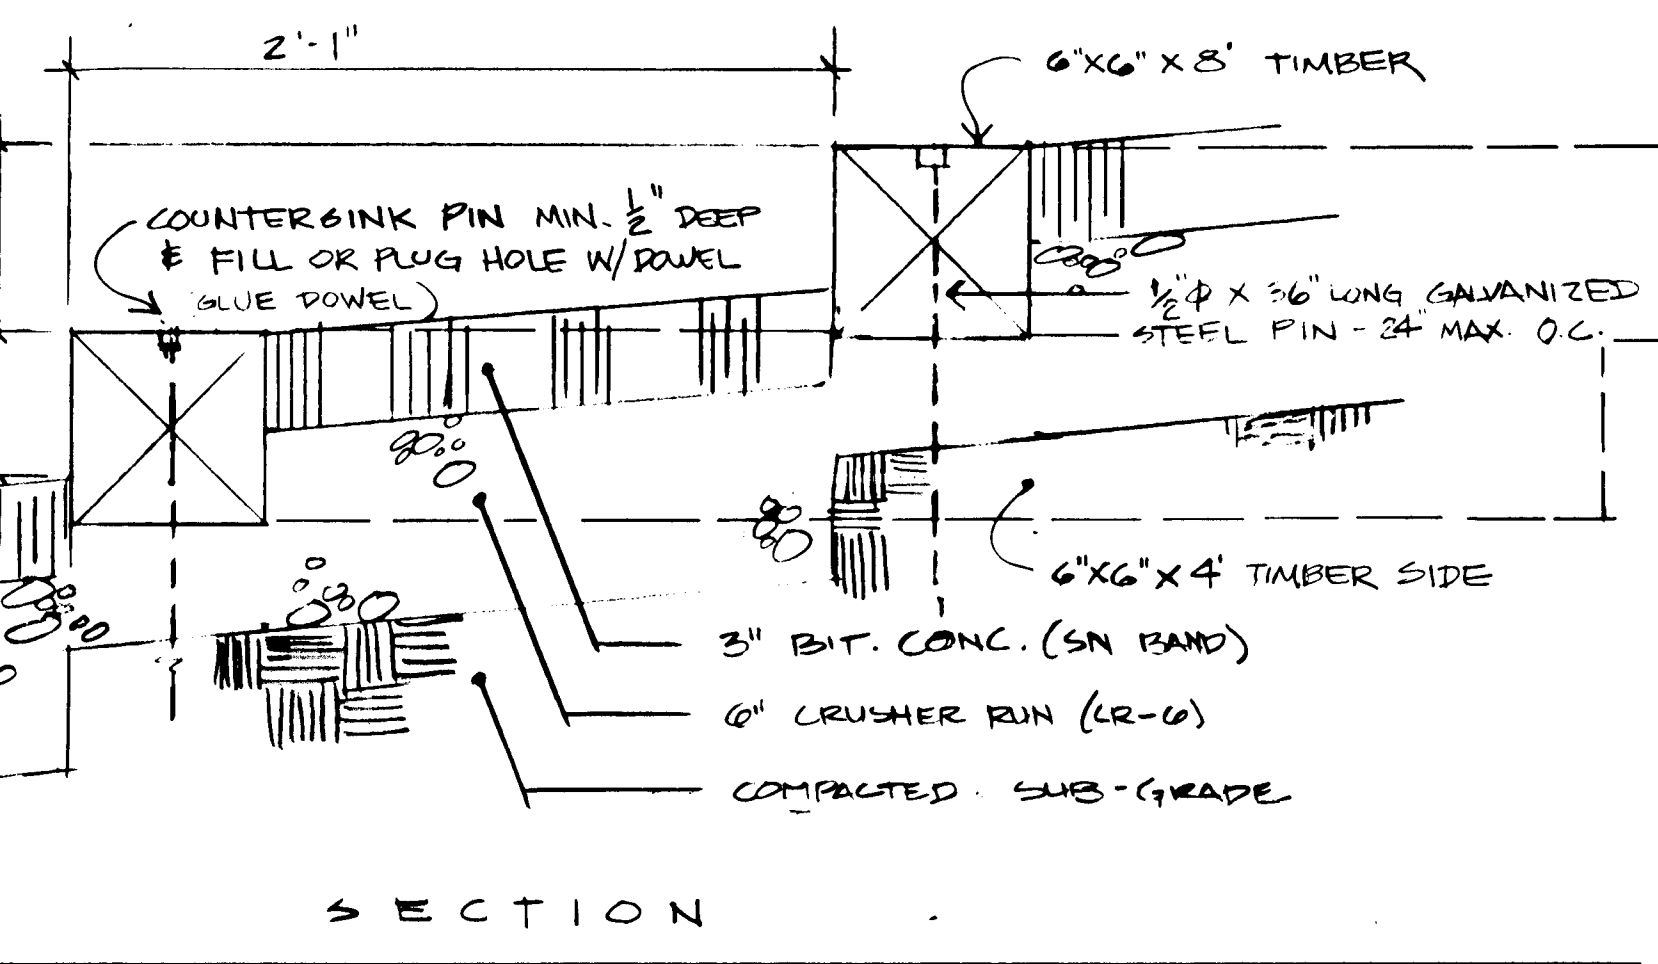 2'-1"
6"X6" X 8' TIMBER
COUNTERSINK PIN MIN. ½" DEEP
& FILL OR PLUG HOLE W/DOWEL
(GLUE DOWEL)
½"φ X 36" LONG GALVANIZED
STEEL PIN - 24" MAX. O.C.
6"X6"X4' TIMBER SIDE
3" BIT. CONC. (SN BAND)
6" CRUSHER RUN (CR-6)
COMPACTED SUB-GRADE
SECTION